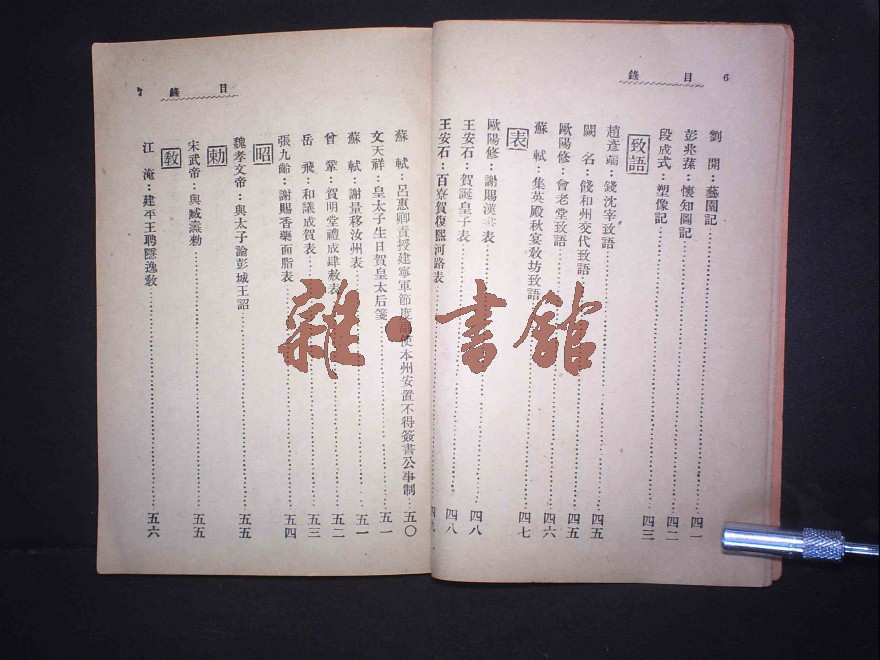 6 目錄
劉開：藝園記 四一
彭兆蓀：懷知圖記
段成式：塑像記 四二
致語 四三
趙彥端：餞沈宰致語 四五
闕名：餞和州交代致語 四五
歐陽修：會老堂致語 四六
蘇軾：集英殿秋宴敎坊致語 四七
表
歐陽修：謝賜漢書表 四八
王安石：賀誕皇子表 四八
王安石：百寮賀復熙河路表
蘇軾：呂惠卿責授建寧軍節度副使本州安置不得簽書公事制 五〇
文天祥：皇太子生日賀皇太后箋 五一
蘇軾：謝量移汝州表 五一
曾鞏：賀明堂禮成肆赦表 五二
岳飛：和議成賀表 五三
張九齡：謝賜香藥面脂表 五四
昭
魏孝文帝：與太子論彭城王詔 五五
勅
宋武帝：與臧燾勑 五五
敎
江淹：建平王聘隱逸敎 五六
目錄
雜·書館